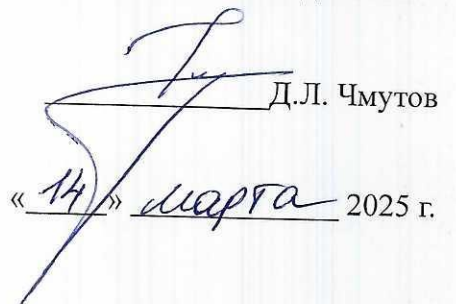 Д.Л. Чмутов
«14» марта 2025 г.